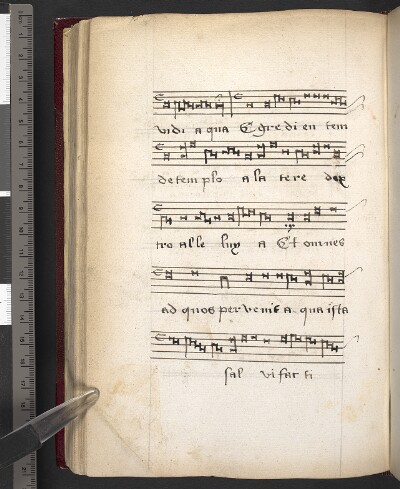 vidi a qua Egre di en tem
de tem plo a la te re dex
tro al le luy a Et omnes
ad quos per venit a qua ista
sal vi fac ti